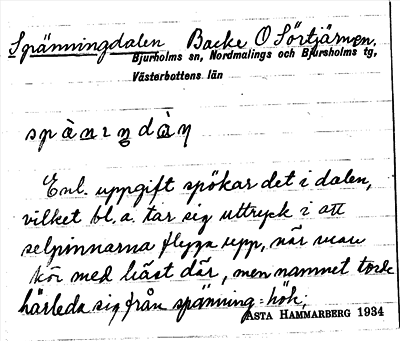 Spränningdalen Backe O Sörtjärnen.
Bjurholms sn, Nordmalings och Bjursholms tg,
Västerbottens län
Enl. uppgift spökar det i dalen,
vilket bl. a. tar sig uttryck i att
selpinnarna flyga upp, när man
kör med häst där, men namnet torde
härleda sig från spänning = hök.
ASTA HAMMARBERG 1934